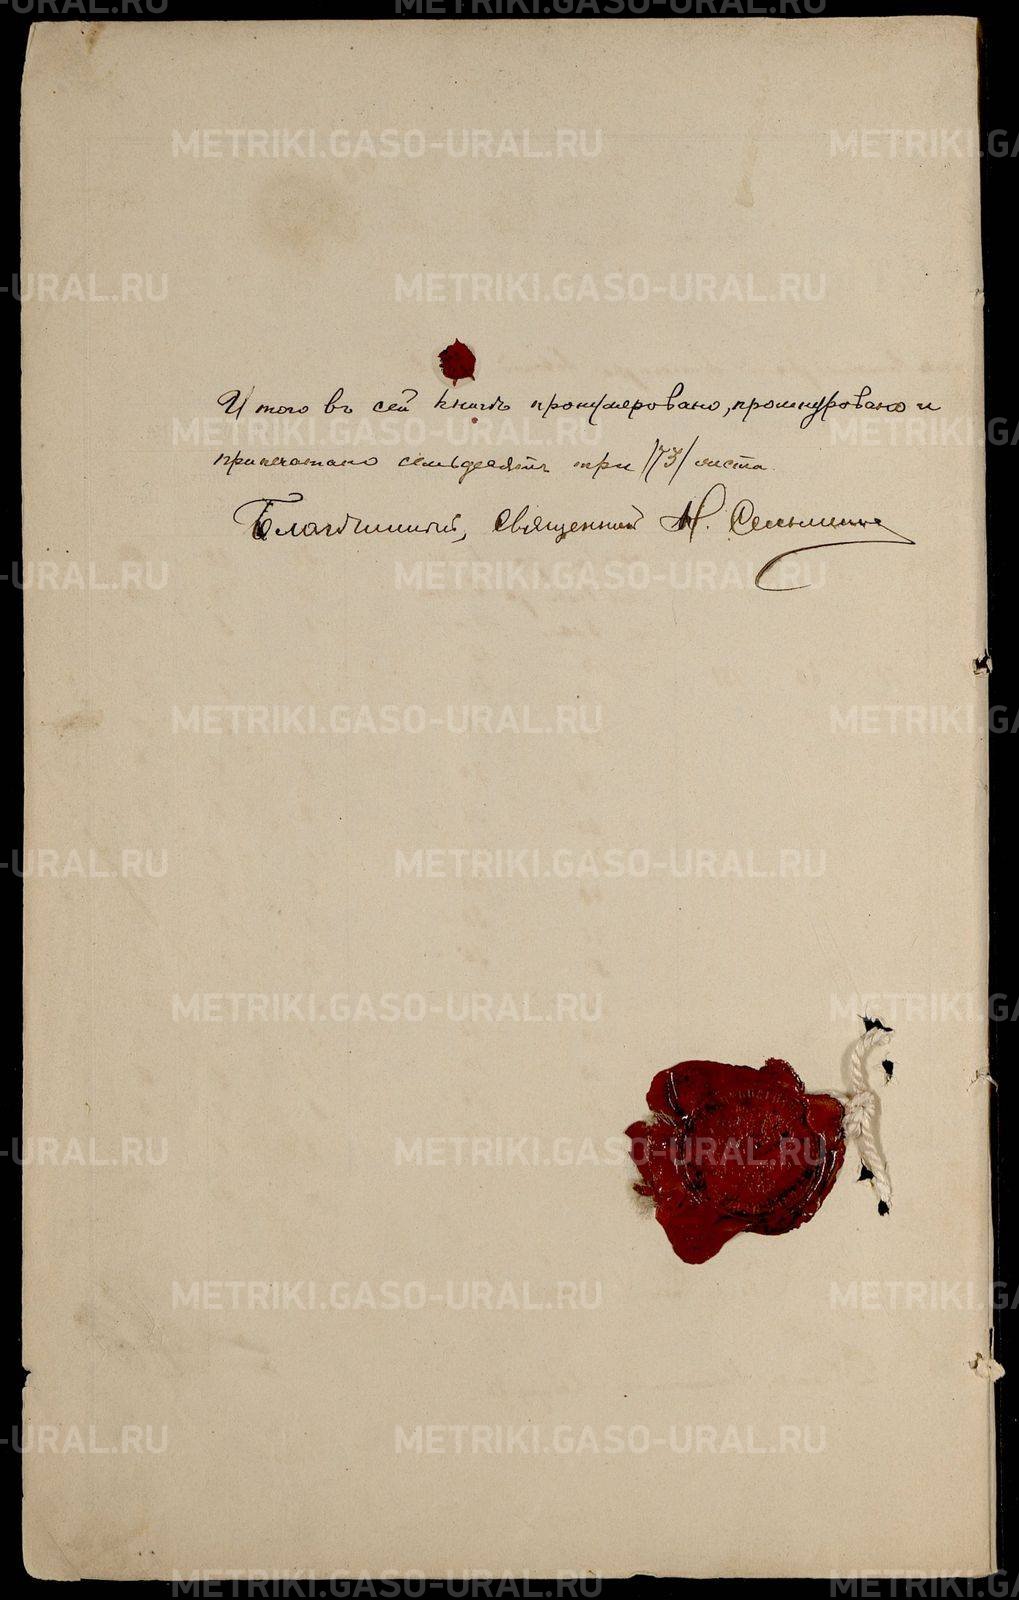 METRIKI.GASO-URAL.RU
Итого въ сей книгѣ пронумеровано, прошнуровано и
припечатано семьдесятъ три /73/ листа.
Благочинный, священникъ М.